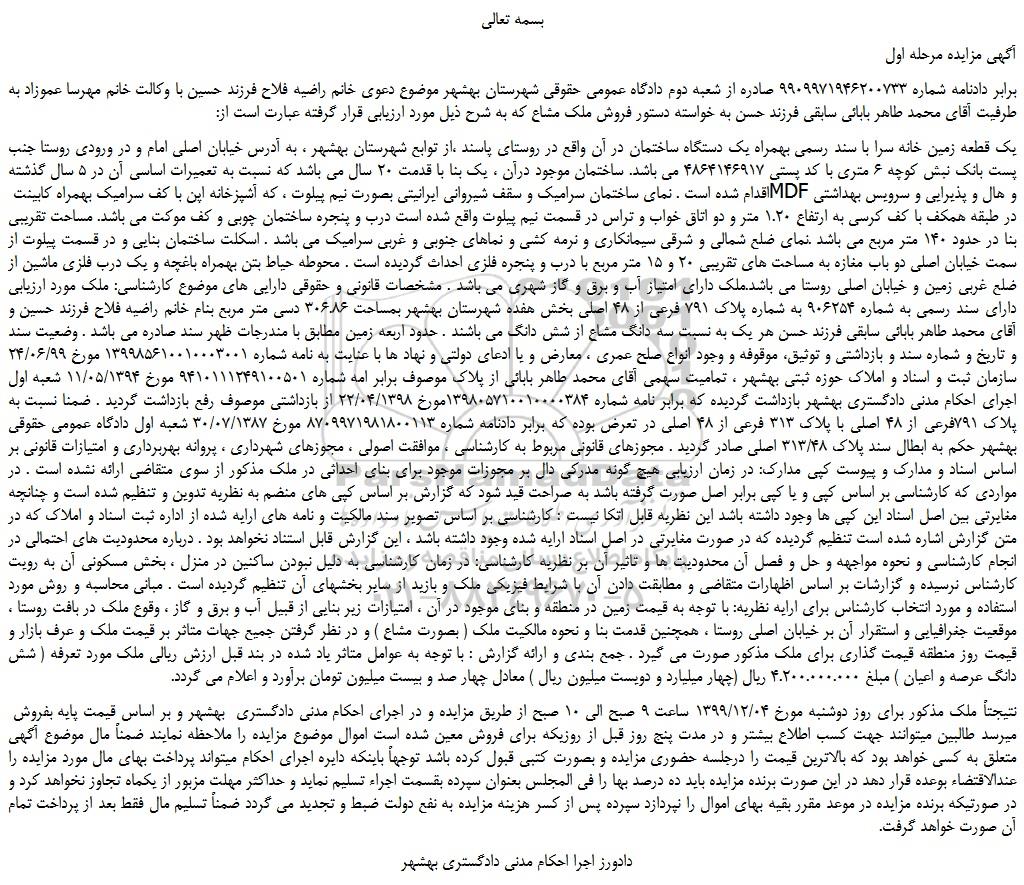 بسمه تعالی
آگهی مزایده مرحله اول
برابر دادنامه شماره ۹۹۰۹۹۷۱۹۴۶۲۰۰۷۳۳ صادره از شعبه دوم دادگاه عمومی حقوقی شهرستان بهشهر موضوع دعوی خانم راضیه فلاح فرزند حسین با وکالت خانم مهرسا عموزاد به
طرفیت آقای محمد طاهر بابائی سابقی فرزند حسن به خواسته دستور فروش ملک مشاع که به شرح ذیل مورد ارزیابی قرار گرفته عبارت است از:
یک قطعه زمین خانه سرا با سند رسمی بهمراه یک دستگاه ساختمان در آن واقع در روستای پاسند ،از توابع شهرستان بهشهر ، به آدرس خیابان اصلی امام و در ورودی روستا جنب
پست بانک نبش کوچه ۶ متری با کد پستی ۴۸۶۴۱۴۶۹۱۷ می باشد. ساختمان موجود درآن ، یک بنا با قدمت ۲۰ سال می باشد که نسبت به تعمیرات اساسی آن در ۵ سال گذشته
و هال و پذیرایی و سرویس بهداشتی MDFاقدام شده است . نمای ساختمان سرامیک و سقف شیروانی ایرانیتی بصورت نیم پیلوت ، که آشپزخانه اپن با کف سرامیک بهمراه کابینت
در طبقه همکف با کف کرسی به ارتفاع ۱.۲۰ متر و دو اتاق خواب و تراس در قسمت نیم پیلوت واقع شده است درب و پنجره ساختمان چوبی و کف موکت می باشد. مساحت تقریبی
بنا در حدود ۱۴۰ متر مربع می باشد .نمای ضلع شمالی و شرقی سیمانکاری و نرمه کشی و نماهای جنوبی و غربی سرامیک می باشد . اسکلت ساختمان بنایی و در قسمت پیلوت از
سمت خیابان اصلی دو باب مغازه به مساحت های تقریبی ۲۰ و ۱۵ متر مربع با درب و پنجره فلزی احداث گردیده است . محوطه حیاط بتن بهمراه باغچه و یک درب فلزی ماشین از
ضلع غربی زمین و خیابان اصلی روستا می باشد.ملک دارای امتیاز آب و برق و گاز شهری می باشد . مشخصات قانونی و حقوقی دارایی های موضوع کارشناسی: ملک مورد ارزیابی
دارای سند رسمی به شماره ۹۰۶۲۵۴ به شماره پلاک ۷۹۱ فرعی از ۴۸ اصلی بخش هفده شهرستان بهشهر بمساحت ۳۰۶.۸۶ دسی متر مربع بنام خانم راضیه فلاح فرزند حسین و
آقای محمد طاهر بابائی سابقی فرزند حسن هر یک به نسبت سه دانگ مشاع از شش دانگ می باشند . حدود اربعه زمین مطابق با مندرجات ظهر سند صادره می باشد . وضعیت سند
و تاریخ و شماره سند و بازداشتی و توثیق، موقوفه و وجود انواع صلح عمری ، معارض و یا ادعای دولتی و نهاد ها با عنایت به نامه شماره ۱۳۹۹۸۵۶۱۰۰۱۰۰۰۳۰۰۱ مورخ ۲۴/۰۶/۹۹
سازمان ثبت و اسناد و املاک حوزه ثبتی بهشهر ، تمامیت سهمی آقای محمد طاهر بابائی از پلاک موصوف برابر امه شماره ۹۴۱۰۱۱۱۲۴۹۱۰۰۵۰۱ مورخ ۱۱/۰۵/۱۳۹۴ شعبه اول
اجرای احکام مدنی دادگستری بهشهر بازداشت گردیده که برابر نامه شماره ۱۳۹۸۰۵۷۱۰۰۱۰۰۰۰۳۸۴مورخ ۲۲/۰۴/۱۳۹۸ از بازداشتی موصوف رفع بازداشت گردید . ضمنا نسبت به
پلاک ۷۹۱فرعی از ۴۸ اصلی با پلاک ۳۱۳ فرعی از ۴۸ اصلی در تعرض بوده که برابر دادنامه شماره ۸۷۰۹۹۷۱۹۸۱۸۰۰۱۱۳ مورخ ۳۰/۰۷/۱۳۸۷ شعبه اول دادگاه عمومی حقوقی
بهشهر حکم به ابطال سند پلاک ۳۱۳/۴۸ اصلی صادر گردید . مجوزهای قانونی مربوط به کارشناسی ، موافقت اصولی ، مجوزهای شهرداری ، پروانه بهره‌برداری و امتیازات قانونی بر
اساس اسناد و مدارک و پیوست کپی مدارک: در زمان ارزیابی هیچ گونه مدرکی دال بر مجوزات موجود برای بنای احداثی در ملک مذکور از سوی متقاضی ارائه نشده است . در
مواردی که کارشناسی بر اساس کپی و یا کپی برابر اصل صورت گرفته باشد به صراحت قید شود که گزارش بر اساس کپی های منضم به نظریه تدوین و تنظیم شده است و چنانچه
مغایرتی بین اصل اسناد این کپی ها وجود داشته باشد این نظریه قابل اتکا نیست : کارشناسی بر اساس تصویر سند مالکیت و نامه های ارایه شده از اداره ثبت اسناد و املاک که در
متن گزارش اشاره شده است تنظیم گردیده که در صورت مغایرتی در اصل اسناد ارایه شده وجود داشته باشد ، این گزارش قابل استناد نخواهد بود . درباره محدودیت های احتمالی در
انجام کارشناسی و نحوه مواجهه و حل و فصل آن محدودیت ها و تاثیر آن بر نظریه کارشناسی: در زمان کارشناسی به دلیل نبودن ساکنین در منزل ، بخش مسکونی آن به رویت
کارشناس نرسیده و گزارشات بر اساس اظهارات متقاضی و مطابقت دادن آن با شرایط فیزیکی ملک و بازید از سایر بخشهای آن تنظیم گردیده است . مبانی محاسبه و روش مورد
استفاده و مورد انتخاب کارشناس برای ارایه نظریه: با توجه به قیمت زمین در منطقه و بنای موجود در آن ، امتیازات زیر بنایی از قبیل آب و برق و گاز ، وقوع ملک در بافت روستا ،
موقعیت جغرافیایی و استقرار آن بر خیابان اصلی روستا ، همچنین قدمت بنا و نحوه مالکیت ملک ( بصورت مشاع ) و در نظر گرفتن جمیع جهات متاثر بر قیمت ملک و عرف بازار و
قیمت روز منطقه قیمت گذاری برای ملک مذکور صورت می گیرد . جمع بندی و ارائه گزارش : با توجه به عوامل متاثر یاد شده در بند قبل ارزش ریالی ملک مورد تعرفه ( شش
دانگ عرصه و اعیان ) مبلغ ۴.۲۰۰.۰۰۰.۰۰۰ ریال (چهار میلیارد و دویست میلیون ریال ) معادل چهار صد و بیست میلیون تومان برآورد و اعلام می گردد.
نتیجتاً ملک مذکور برای روز دوشنبه مورخ ۱۳۹۹/۱۲/۰۴ ساعت ۹ صبح الی ۱۰ صبح از طریق مزایده و در اجرای احکام مدنی دادگستری بهشهر و بر اساس قیمت پایه بفروش
میرسد طالبین میتوانند جهت کسب اطلاع بیشتر و در مدت پنج روز قبل از روزیکه برای فروش معین شده است اموال موضوع مزایده را ملاحظه نمایند ضمناً مال موضوع آگهی
متعلق به کسی خواهد بود که بالاترین قیمت را درجلسه حضوری مزایده و بصورت کتبی قبول کرده باشد توجهاً باینکه دایره اجرای احکام میتواند پرداخت بهای مال مورد مزایده را
عندالاقتضاء بوعده قرار دهد در این صورت برنده مزایده باید ده درصد بها را فی المجلس بعنوان سپرده بقسمت اجراء تسلیم نماید و حداکثر مهلت مزبور از یکماه تجاوز نخواهد کرد و
در صورتیکه برنده مزایده در موعد مقرر بقیه بهای اموال را نپردازد سپرده پس از کسر هزینه مزایده به نفع دولت ضبط و تجدید می گردد ضمناً تسلیم مال فقط بعد از پرداخت تمام
آن صورت خواهد گرفت.
دادورز اجرا احکام مدنی دادگستری بهشهر
ParsNamadData